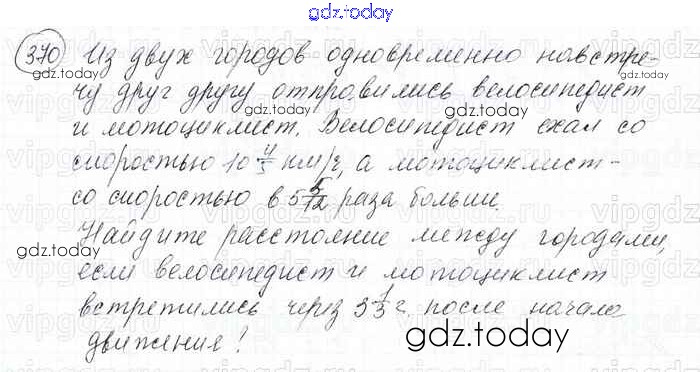 gdz.today
370 Из двух городов одновременно навстре-
чу друг другу отправились велосипедист
и мотоциклист. Велосипедист ехал со
скоростью 10 4/5 км/ч, а мотоциклист -
со скоростью в 5 5/12 раза больше.
Найдите расстояние между городами,
если велосипедист и мотоциклист
встретились через 3 1/3 ч после начала
движения!
gdz.today